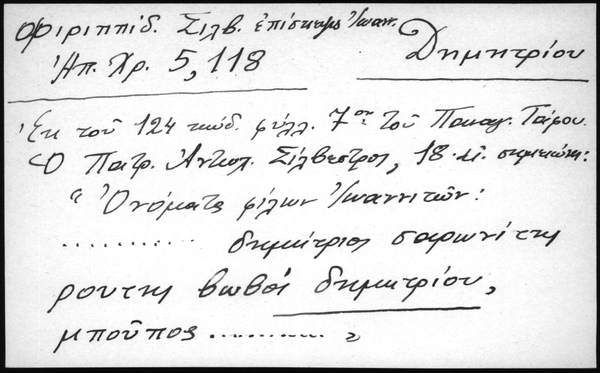 Φιριππίδ. Σιλβ. ἐπίσκεψς Ἰωαν.
Δημητρίου
Ἠπ. Χρ. 5, 118
Ἐκ τοῦ 124 κώδ. φύλλ. 7ον τοῦ Παναγ. Τάφου.
Ὁ Πατρ. Ἀντιοχ. Σίλβεστρος, 18 αἰ. σημειώνει:
"Ὀνόματα φίλων Ἰωαννιτῶν:
.......... δημήτριος σαρωνίτης
ρούτης βωβός δημητρίου,
μποῦπος ..........